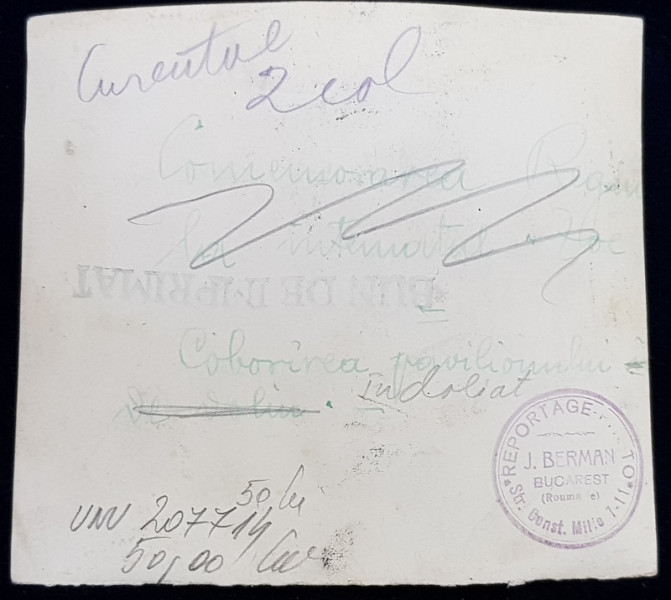 Curentul
2 col
Comemorarea
la internatul
BUN DE IMPRIMAT
Coborîrea pavilionului
îndoliat
REPORTAGE
J. BERMAN
BUCAREST
Str. Const. Mille 7-11
50 lei
UNV 207714
50,00 lei